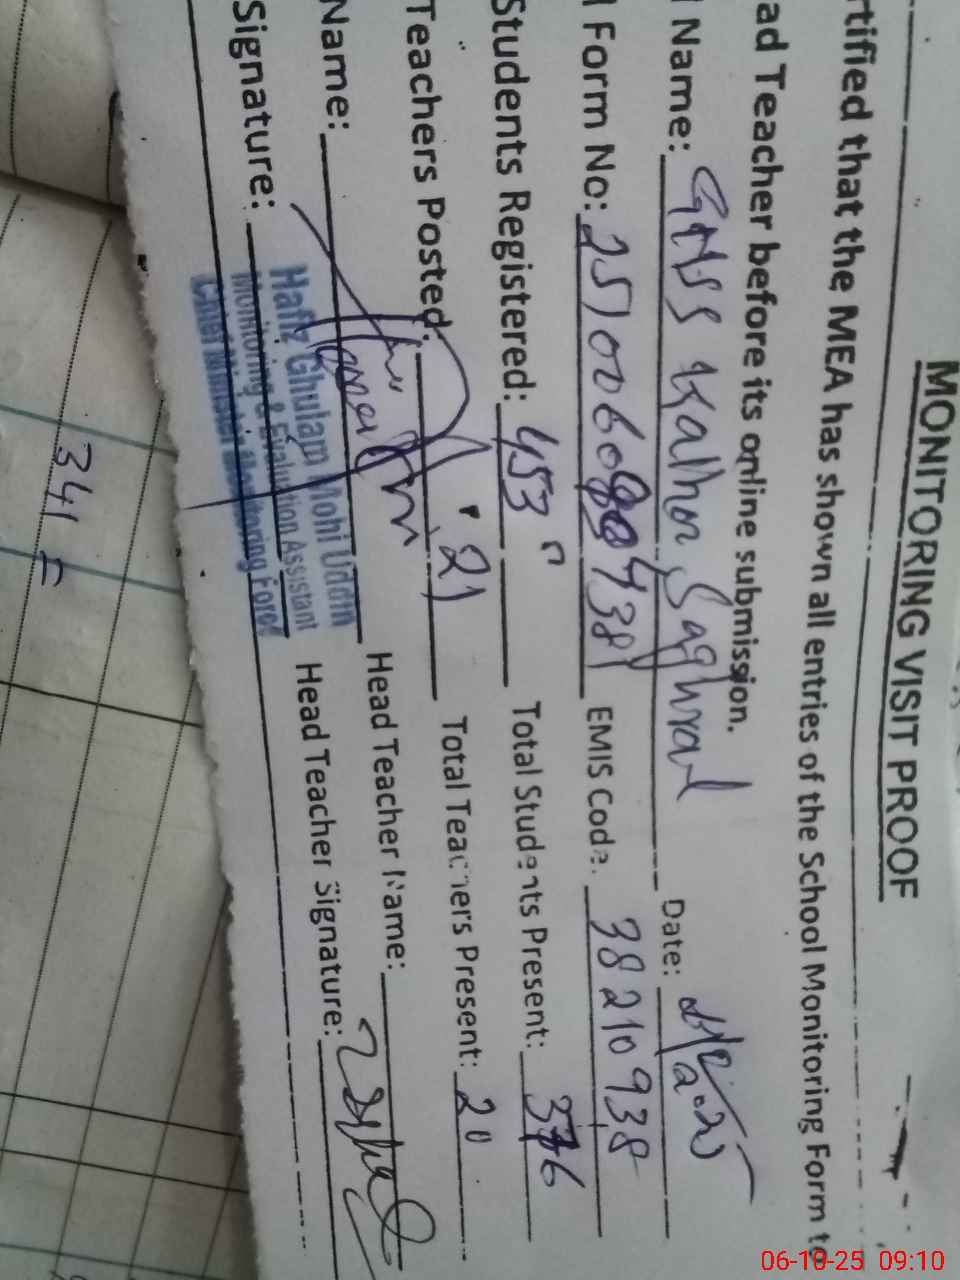 MONITORING VISIT PROOF
rtified that the MEA has shown all entries of the School Monitoring Form to
ad Teacher before its online submission.
l Name: GHSS Kalhor Saghral Date:
l Form No: EMIS Code. 38210938
Students Registered: 453 Total Students Present: 376
Teachers Posted: 21 Total Teachers Present: 20
Name: Head Teacher Name:
Signature: Head Teacher Signature:
Hafiz Ghulam Mohi Uddin
Monitoring & Evaluation Assistant
Chief Minister Monitoring Force
341 =
06-10-25 09:10